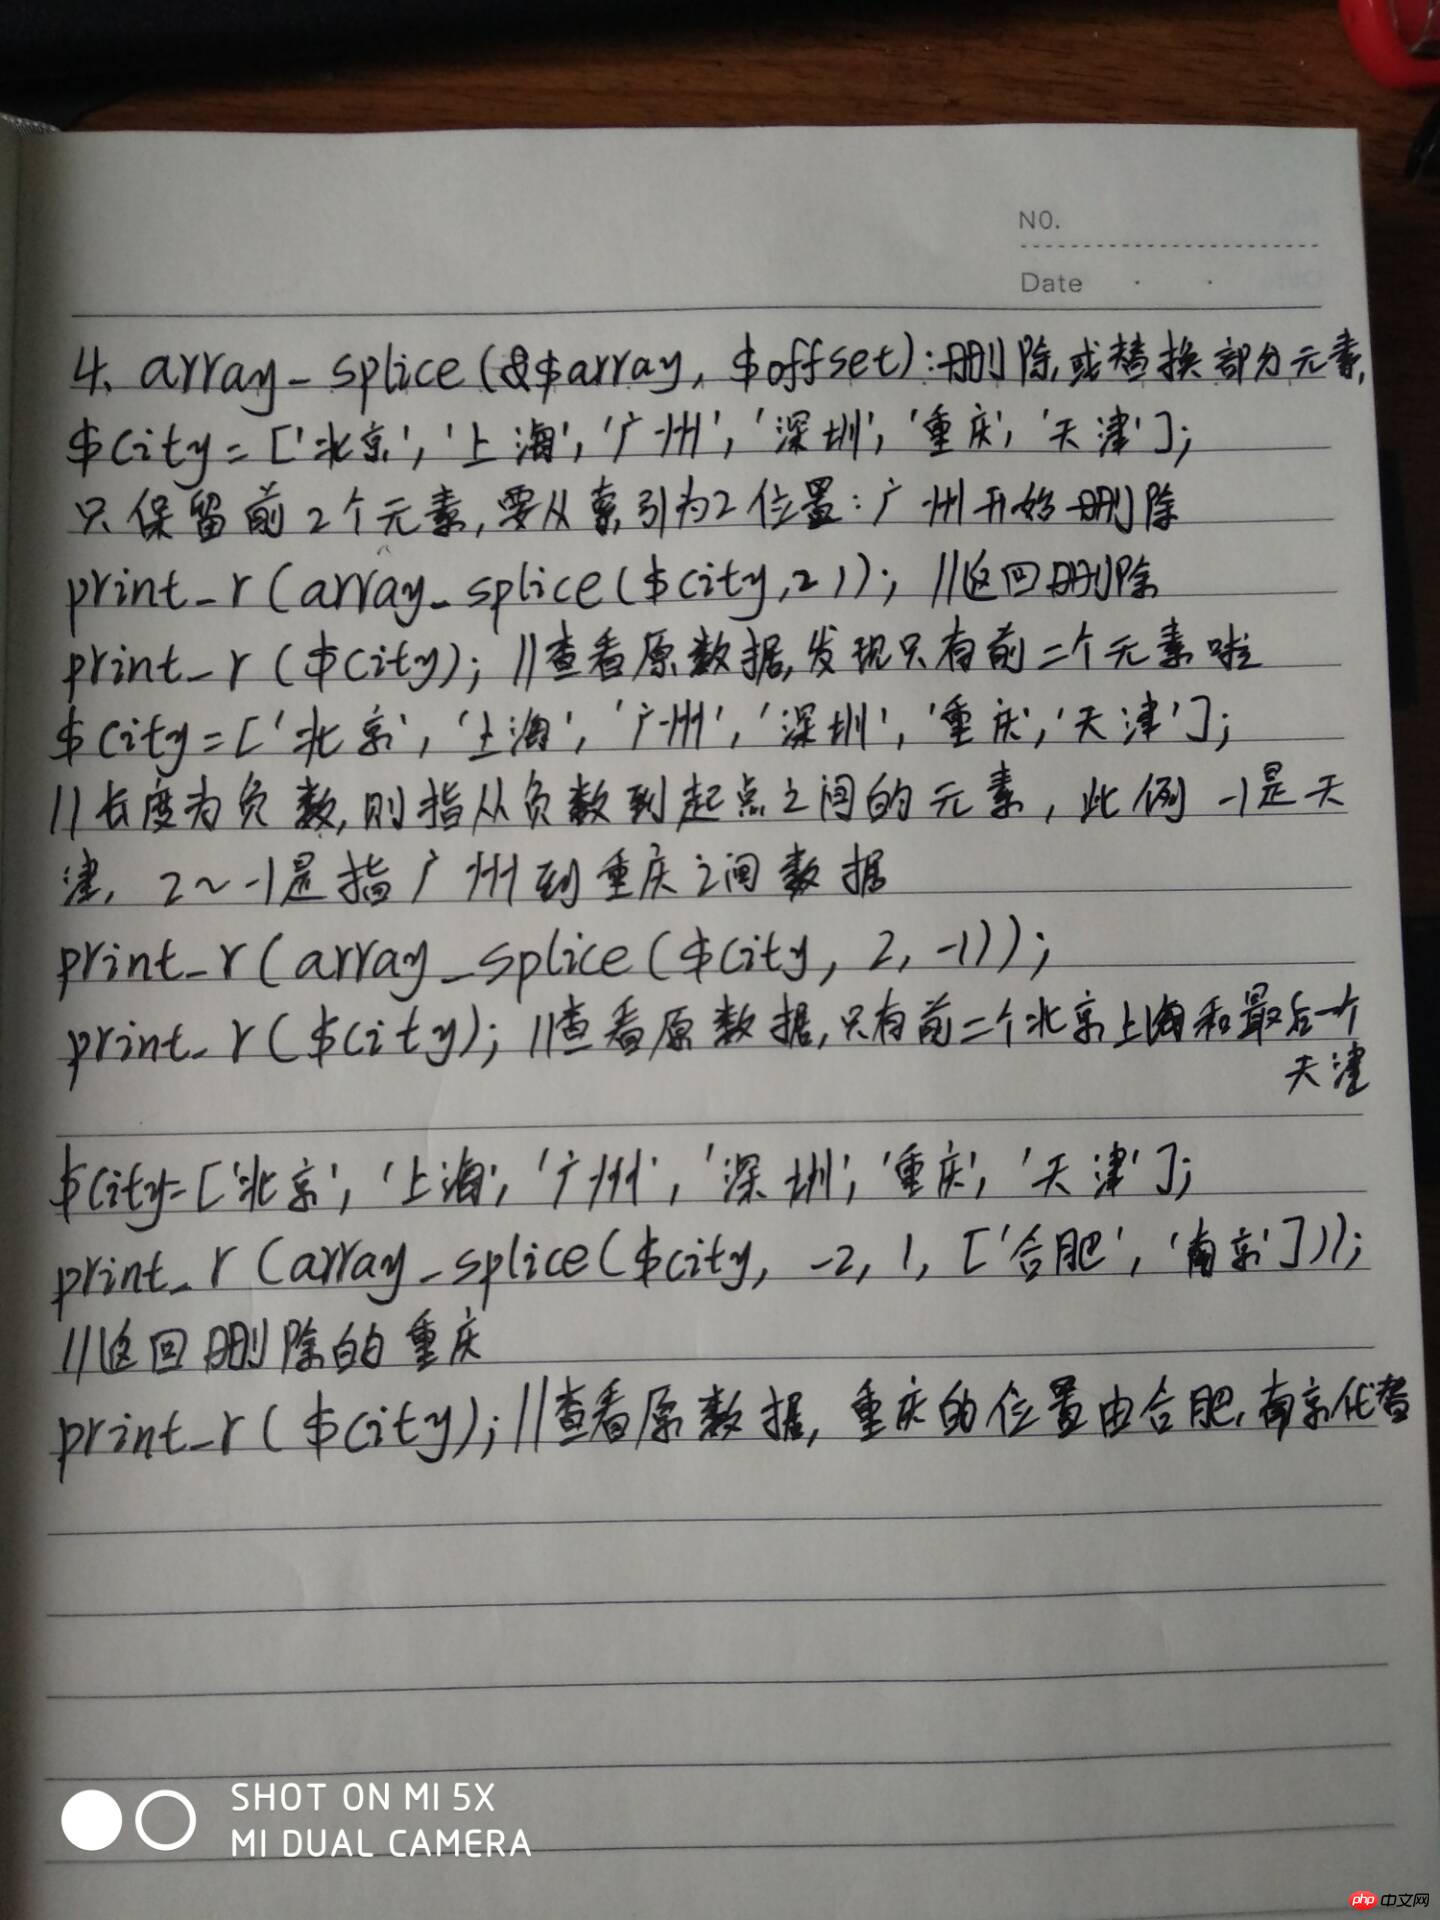 NO.
Date
4. array_splice(&$array, $offset):删除或替换部分元素,
$city=['北京','上海','广州','深圳','重庆','天津'];
只保留前2个元素,要从索引为2位置:广州开始删除
print_r(array_splice($city,2)); //返回删除
print_r($city); //查看原数据,发现只有前二个元素啦
$city=['北京','上海','广州','深圳','重庆','天津'];
//长度为负数,则指从负数到起点之间的元素,此例 -1是天
津, 2~-1是指广州到重庆之间数据
print_r(array_splice($city, 2, -1));
print_r($city); //查看原数据,只有前二个北京上海和最后一个
天津
$city=['北京','上海','广州','深圳','重庆','天津'];
print_r(array_splice($city, -2, 1, ['合肥','南京']));
//返回删除的重庆
print_r($city); //查看原数据,重庆的位置由合肥,南京代替
SHOT ON MI 5X
MI DUAL CAMERA
php 中文网